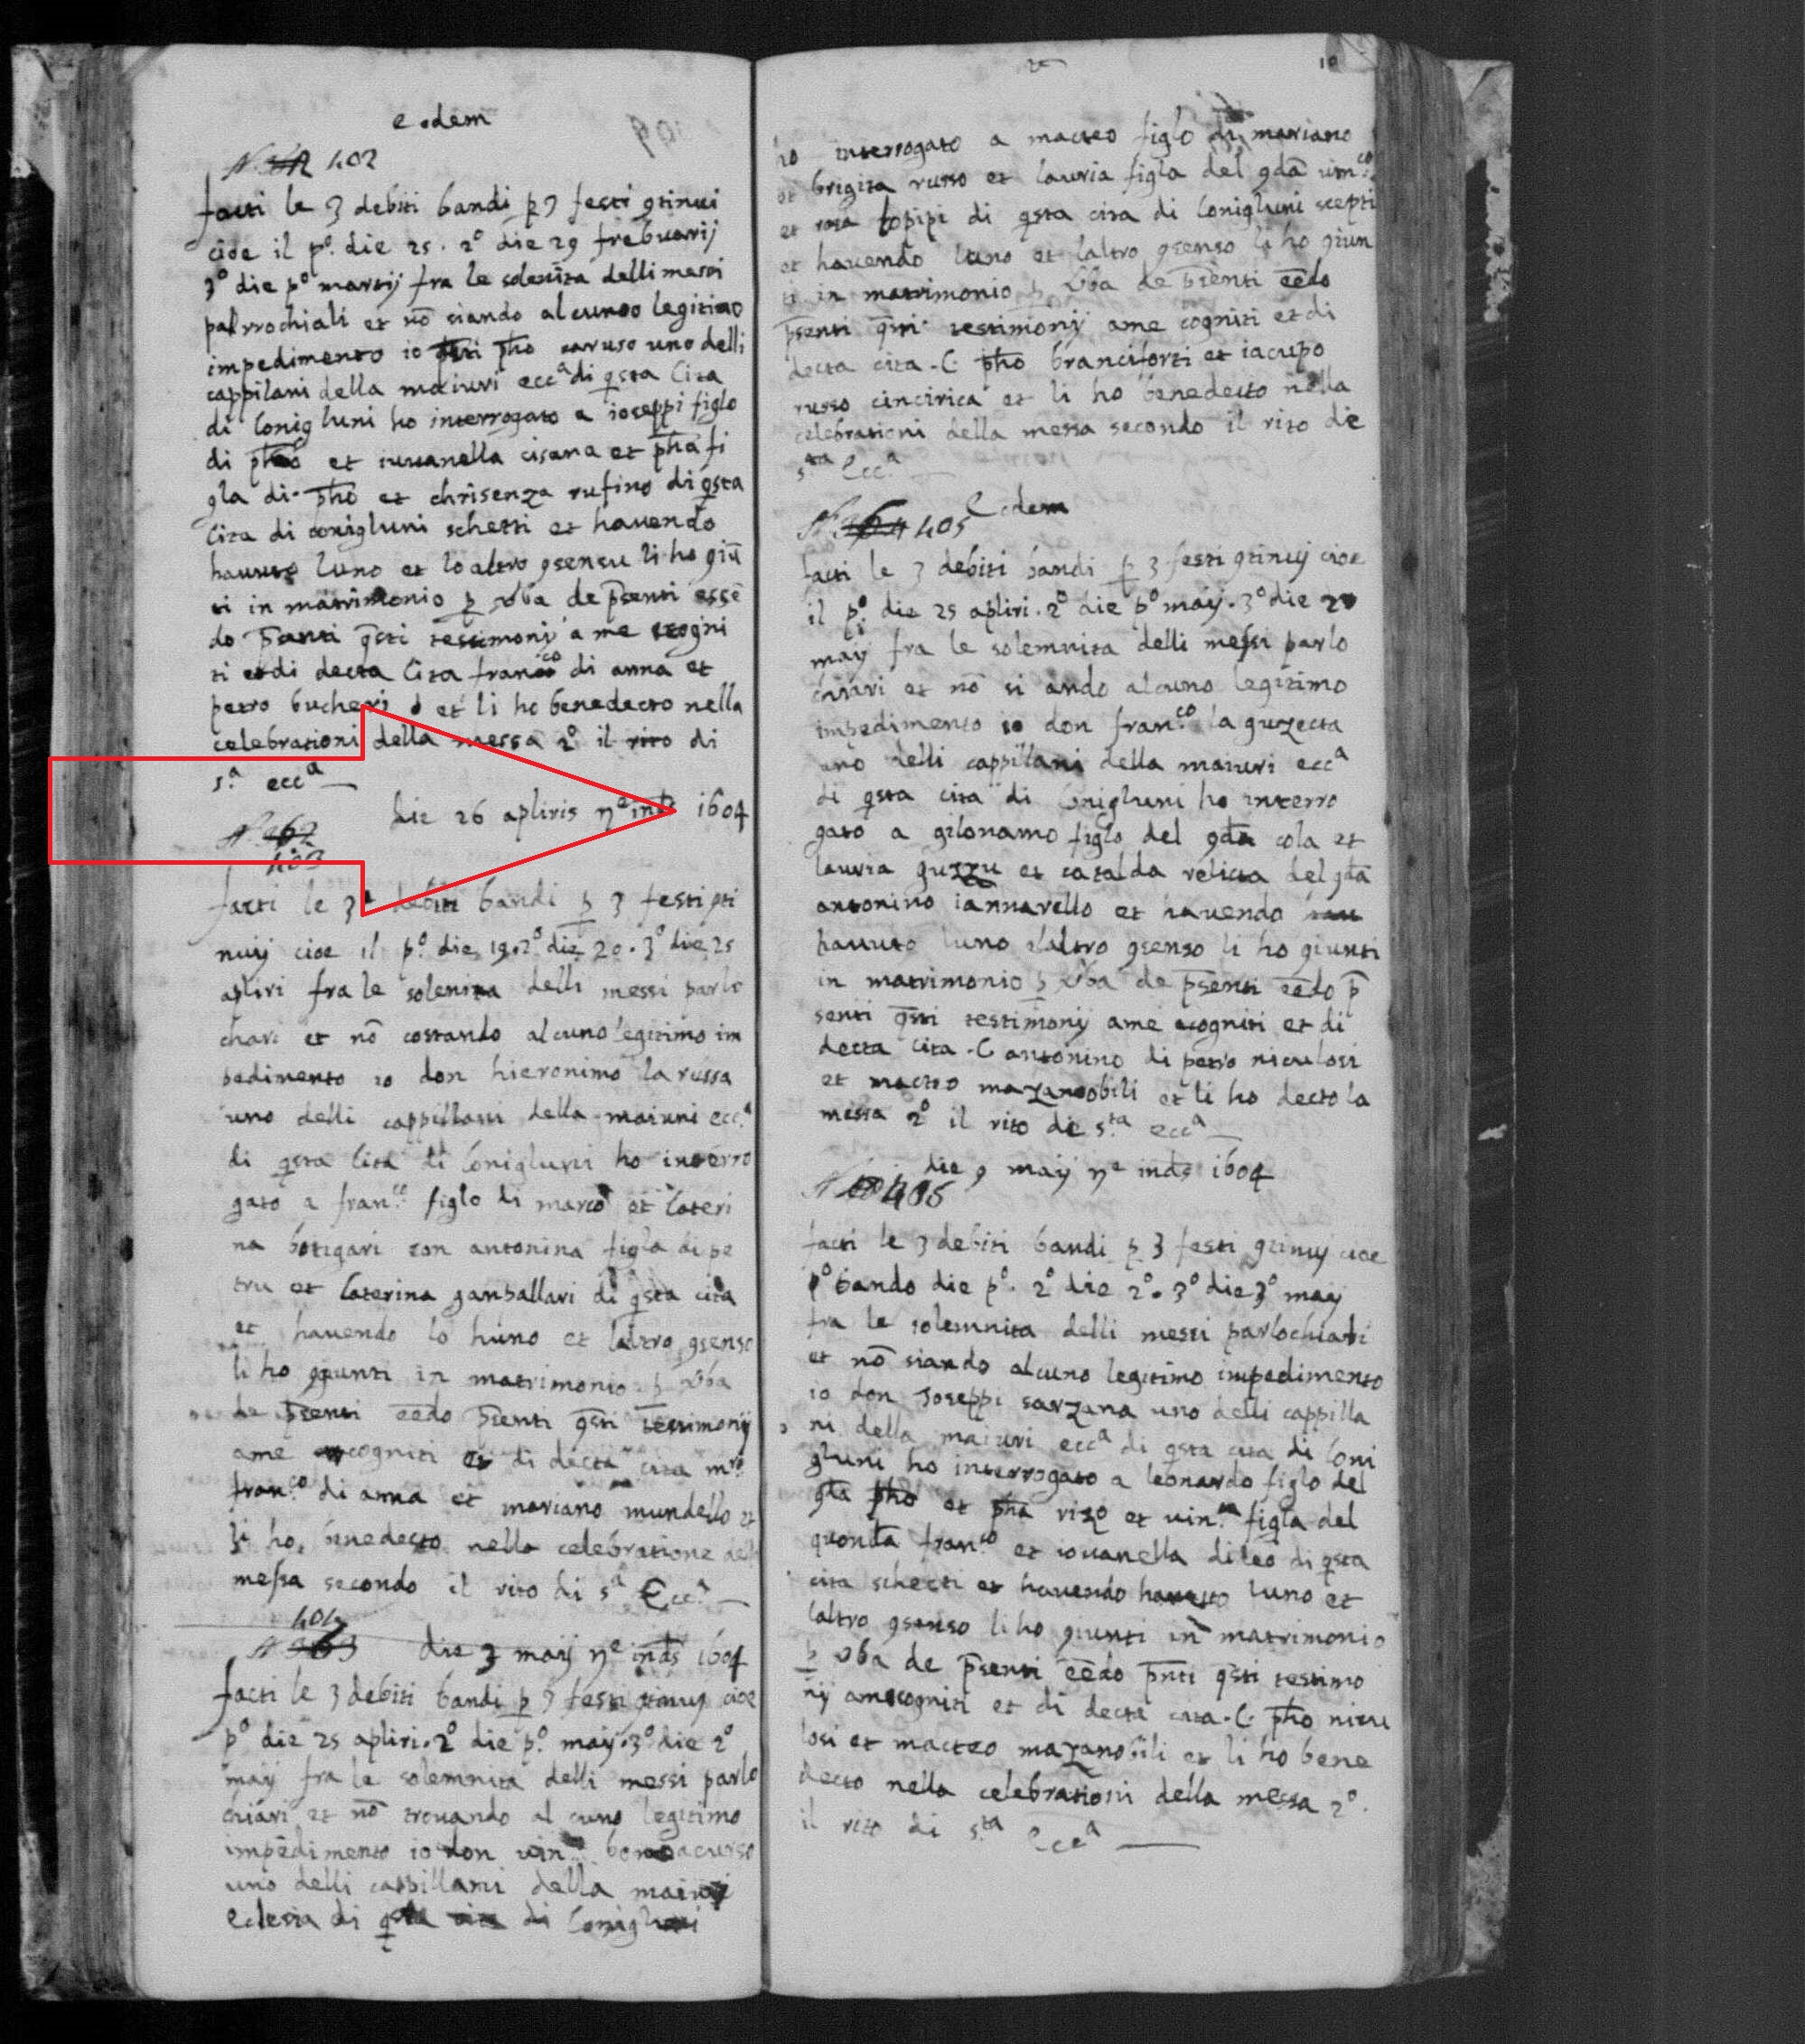 eodem
N. 402
facti le 3 debiti bandi p 3 festi gtinui
cioe il p.o die 25. 2o die 29 frebuarij
3o die po martij fra le solenita delli messi
parrochiali et nō siando alcuno legitimo
impedimento io pho caruso uno delli
cappilani della maiuri ecc.a di qsta Cita
di Conigluni ho interrogato a ioseppi figlo
di pho et iuuanella cisana et pha fi
gla di pho et chrisenza rufino di qsta
Cita di conigluni schetti et hauendo
hauuto luno et lo altro gsensu li ho giū
ti in matrimonio p vba de psenti essē
do psenti qsti testimonij a me cogni
ti et di decta Cita fran.co di anna et
petro bucheri et li ho benedecto nella
celebrationi della messa 2o il rito di
s.a ecc.a
die 26 apliris ne ind. 1604
N. 262
403
facti le 3 debiti bandi p 3 festi gti
nuij cioe il p.o die 19. 2o die 20. 3o die 25
apliri fra le solenita delli messi parlo
chiari et nō costando alcuno legitimo im
pedimento io don hieronimo la russa
uno delli cappillani della maiuri ecc.a
di qsta Cita di Conigluni ho interro
gato a fran.co figlo di marco et Cateri
na botigari con antonina figla di pe
tru et Caterina ganballari di qsta cita
et hauendo lo huno et laltro gsenso
li ho giunti in matrimonio p vba
de psenti eēdo psenti qsti testimonij
ame cogniti et di decta cita m.ro
fran.co di anna et mariano mundello et
li ho benedecto nella celebratione dell
messa secondo il rito di s.a Ecc.a
404
N. 263 die 3 maij ne inds 1604
facti le 3 debiti bandi p 3 festi gtinuij cioe
po die 25 apliri. 2o die p.o maij. 3o die 2o
maij fra le solemnita delli messi parlo
chiari et nō trouando alcuno legitimo
impedimento io don vin. bonaacurso
uno delli cappillani della maiuri
eclesia di qsta cita di Conigluni
10
ho interrogato a macteo figlo di mariano
et brigita russo et lauria figla del qdā vin.co
et rosa topipi di qsta cita di Conigluni scepti
et hauendo luno et laltro gsenso li ho giun
ti in matrimonio p vba de psenti eēdo
psenti qsti testimonij ame cogniti et di
decta cita .C. pho branciforti et iacupo
russo cincirica et li ho benedecto nella
celebrationi della messa secondo il rito die
s.ta Ecc.a
Eodem
N. 264 405
facti le 3 debiti bandi p 3 festi gtinuij cioe
il p.o die 25 apliri. 2o die po maij. 3o die 2o
maij fra le solemnita delli messi parlo
chiari et nō siando alcuno legitimo
impedimento io don fran.co la guzecta
uno delli cappillani della maiuri ecc.a
di qsta cita di Conigluni ho interro
gato a gilonamo figlo del qda cola et
lauria guzzu et catalda relicta del qdā
antonino iannarello et hauendo
hauuto luno elaltro gsenso li ho giunti
in matrimonio p vba de psenti eēdo p
senti qsti testimonij ame cogniti et di
decta cita .C. antonino di petro niculosi
et macteo mazanobili et li ho decto la
messa 2o il rito de s.ta ecc.a
die 9 maij ne inds 1604
N. 405
facti le 3 debiti bandi p 3 festi gtinuij cioe
po bando die po. 2o die 2o. 3o die 3o maij
fra le solemnita delli messi parlochiali
et nō siando alcuno legitimo impedimento
io don Joseppi sarzana uno delli cappilla
ni della maiuri ecc.a di qsta cita di Coni
gluni ho interrogato a leonardo figlo del
qda pho et pha rizo et vin.a figla del
quonda fran.co et iouanella di leo di qsta
cita schecti et hauendo hauuto luno et
laltro gsenso li ho giunti in matrimonio
p vba de psenti eēdo pnti qsti testimo
nij ame cogniti et di decta cita .C. pho nicu
losi et macteo mazanobili et li ho bene
decto nella celebrationi della messa 2o.
il rito di s.ta Ecc.a